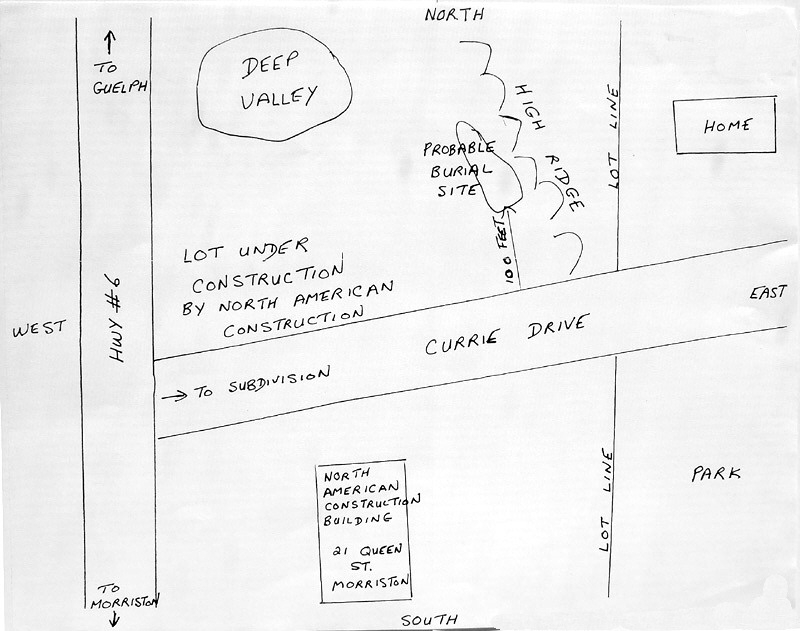 NORTH
TO
GUELPH
DEEP
VALLEY
HIGH RIDGE
LOT LINE
HOME
PROBABLE
BURIAL
SITE
100 FEET
LOT UNDER
CONSTRUCTION
BY NORTH AMERICAN
CONSTRUCTION
WEST
HWY #6
EAST
CURRIE DRIVE
→ TO SUBDIVISION
NORTH
AMERICAN
CONSTRUCTION
BUILDING
21 QUEEN
ST.
MORRISTON
LOT LINE
PARK
TO
MORRISTON
SOUTH